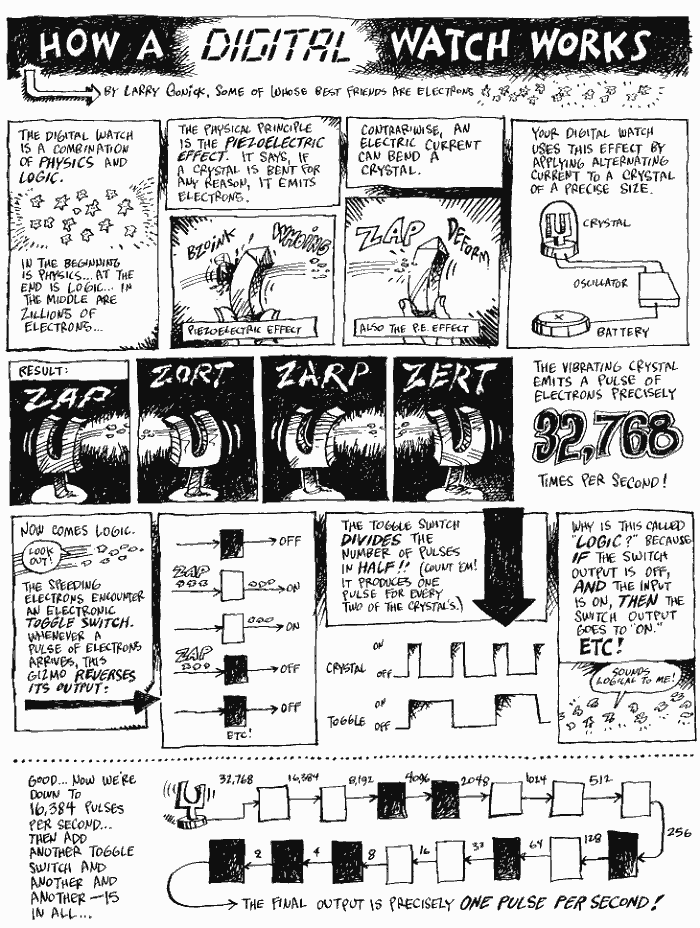 HOW A DIGITAL WATCH WORKS
BY LARRY GONICK, SOME OF WHOSE BEST FRIENDS ARE ELECTRONS
THE DIGITAL WATCH
IS A COMBINATION
OF PHYSICS AND
LOGIC.
IN THE BEGINNING
IS PHYSICS... AT THE
END IS LOGIC... IN
THE MIDDLE ARE
ZILLIONS OF
ELECTRONS...
THE PHYSICAL PRINCIPLE
IS THE PIEZOELECTRIC
EFFECT. IT SAYS, IF
A CRYSTAL IS BENT FOR
ANY REASON, IT EMITS
ELECTRONS.
BZOINK
PIEZOELECTRIC EFFECT
CONTRARIWISE, AN
ELECTRIC CURRENT
CAN BEND A
CRYSTAL.
ZAP
DEFORM
ALSO THE P.E. EFFECT
YOUR DIGITAL WATCH
USES THIS EFFECT BY
APPLYING ALTERNATING
CURRENT TO A CRYSTAL
OF A PRECISE SIZE.
CRYSTAL
OSCILLATOR
BATTERY
RESULT:
ZAP
ZORT
ZARP
ZERT
THE VIBRATING CRYSTAL
EMITS A PULSE OF
ELECTRONS PRECISELY
32,768
TIMES PER SECOND!
NOW COMES LOGIC.
LOOK
OUT!
THE SPEEDING
ELECTRONS ENCOUNTER
AN ELECTRONIC
TOGGLE SWITCH.
WHENEVER A
PULSE OF ELECTRONS
ARRIVES, THIS
GIZMO REVERSES
ITS OUTPUT:
OFF
ZAP
ON
ON
ZAP
OFF
OFF
ETC!
THE TOGGLE SWITCH
DIVIDES THE
NUMBER OF PULSES
IN HALF!! (COUNT 'EM!
IT PRODUCES ONE
PULSE FOR EVERY
TWO OF THE CRYSTAL'S.)
ON
CRYSTAL
OFF
ON
TOGGLE
OFF
WHY IS THIS CALLED
"LOGIC?" BECAUSE
IF THE SWITCH
OUTPUT IS OFF,
AND THE INPUT
IS ON, THEN THE
SWITCH OUTPUT
GOES TO "ON."
ETC!
SOUNDS
LOGICAL TO ME!
GOOD... NOW WE'RE
DOWN TO
16,384 PULSES
PER SECOND...
THEN ADD
ANOTHER TOGGLE
SWITCH AND
ANOTHER AND
ANOTHER—15
IN ALL...
32,768 16,384 8,192 4096 2048 1024 512
256
2 4 8 16 32 64 128
THE FINAL OUTPUT IS PRECISELY ONE PULSE PER SECOND!